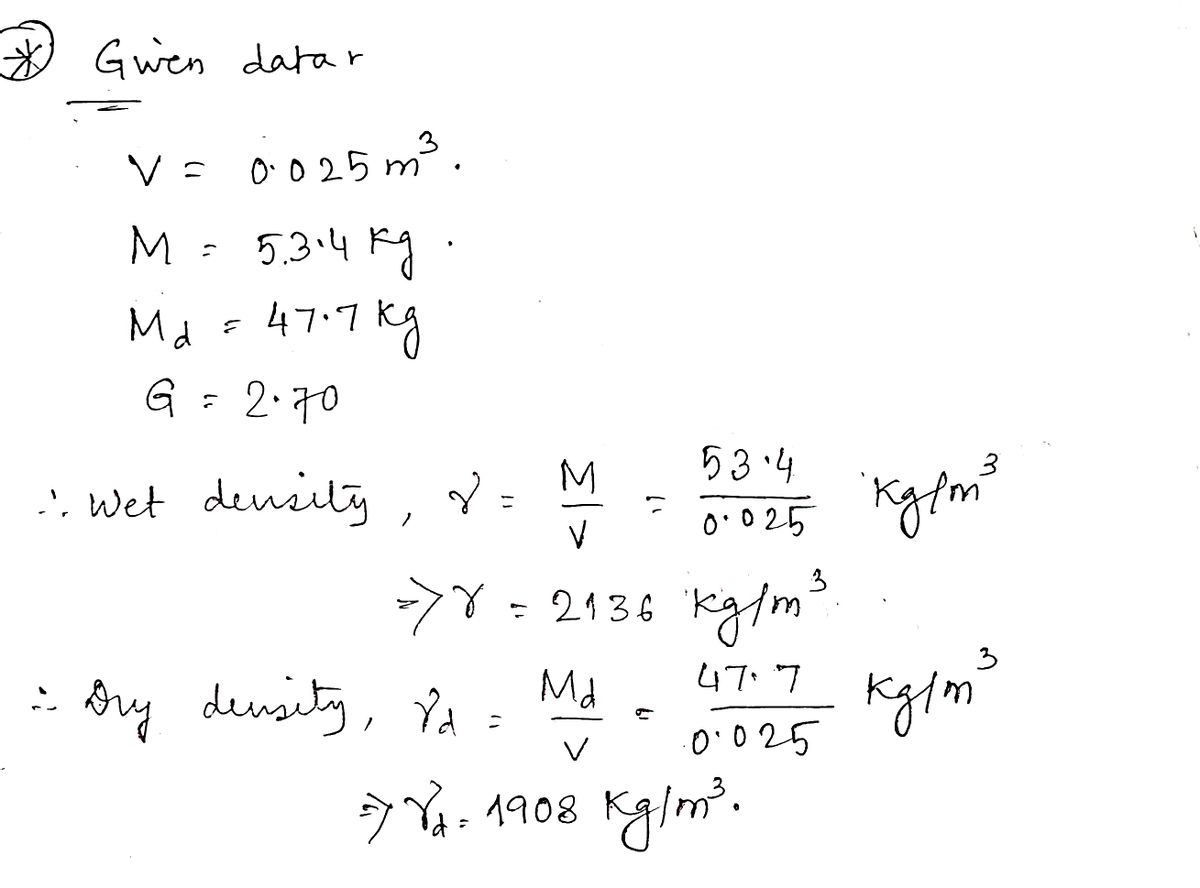 * Given data r
V = 0.025 m³.
M = 53.4 Kg.
Md = 47.7 Kg
G = 2.70
∴ Wet density, γ = M/V = 53.4/0.025 Kg/m³
⇒ γ = 2136 Kg/m³.
∴ Dry density, γd = Md/V = 47.7/0.025 Kg/m³
⇒ γd = 1908 Kg/m³.